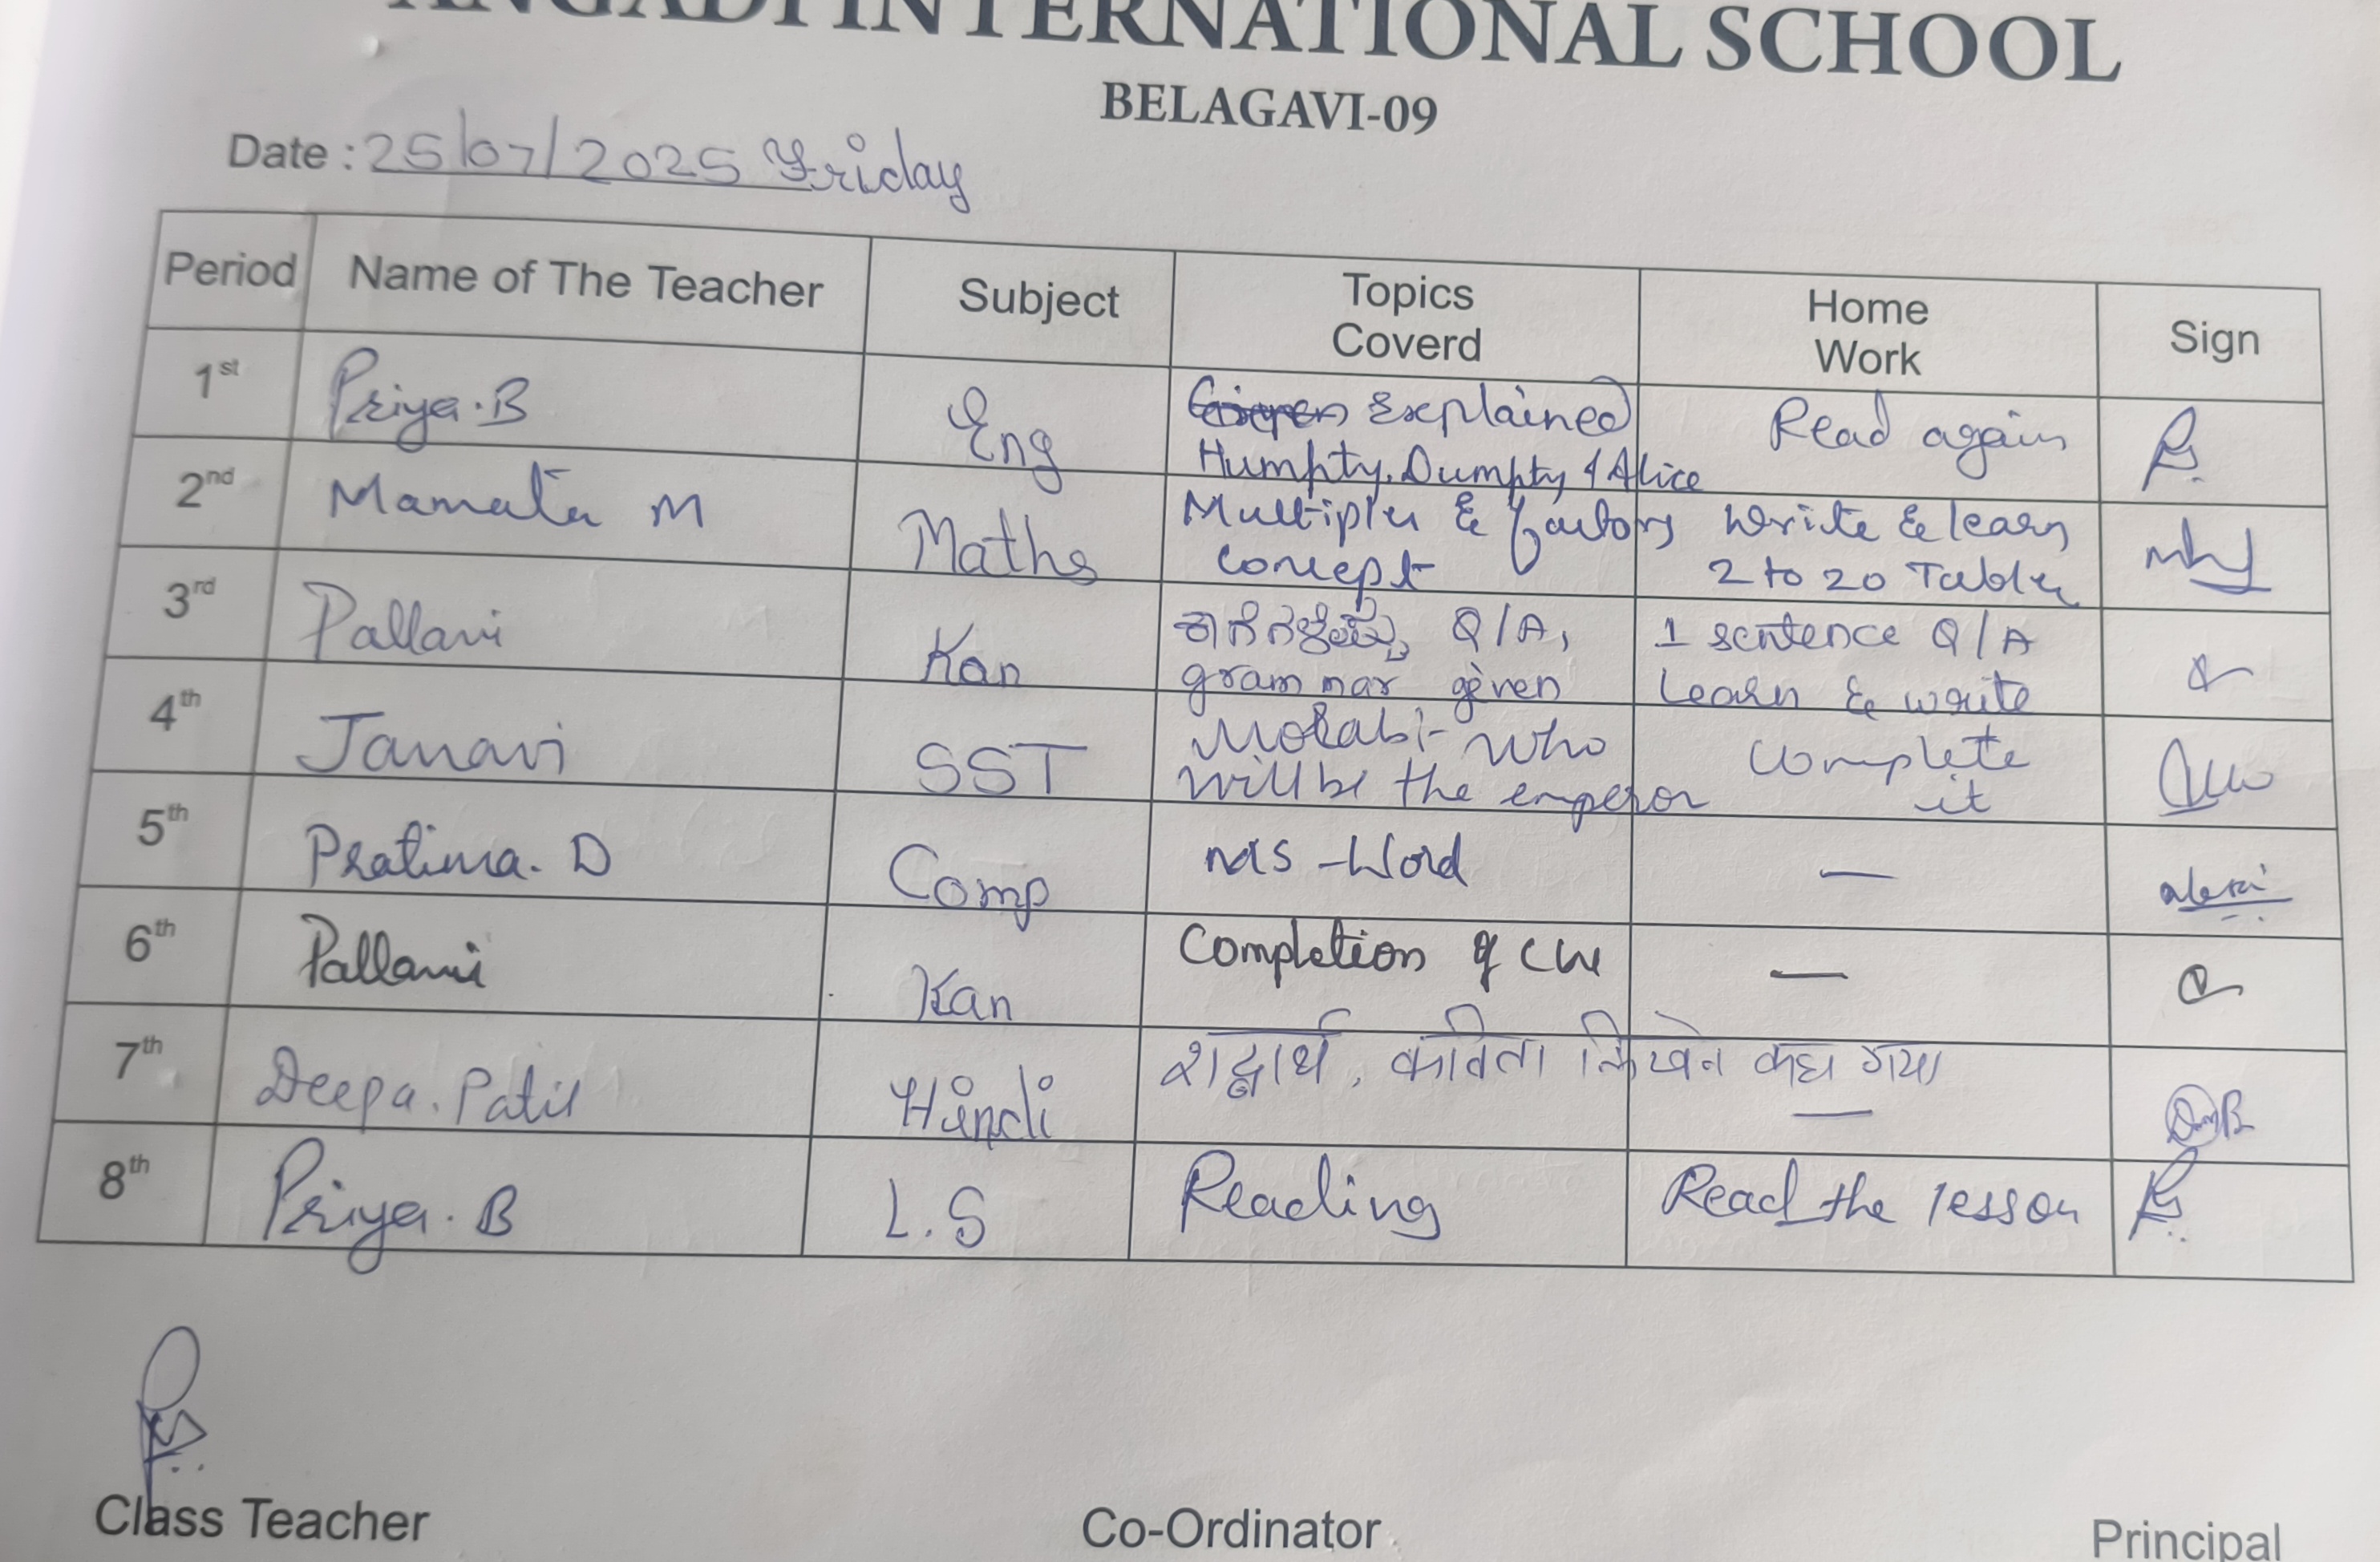 ANGADI INTERNATIONAL SCHOOL
BELAGAVI-09
Date : 25/07/2025 Friday
Period Name of The Teacher Subject Topics Coverd Home Work Sign
1st Priya.B Eng Explained Read again
Humpty.Dumpty & Alice
2nd Mamata M Maths Multiples & factors Write & learn
concept 2 to 20 Tables
3rd Pallavi Kan Q/A, 1 sentence Q/A
grammar given Learn & write
4th Janavi SST Who Complete
will be the emperor it
5th Pratima. D Comp MS-Word —
6th Pallavi Kan Completion of CW —
7th Deepa. Patil Hindi शब्दार्थ, कविता गया
—
8th Priya. B L.S Reading Read the lesson
Class Teacher Co-Ordinator Principal